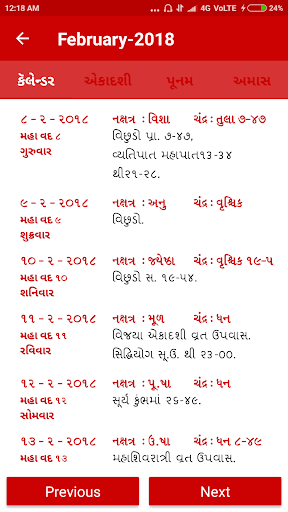 12:18 AM 4G VoLTE 24%
February-2018
કૅલેન્ડર એકાદશી પૂનમ અમાસ
૮ - ૨ - ૨૦૧૮ નક્ષત્ર : વિશા ચંદ્ર : તુલા ૭-૪૭
મહા વદ ૮ વિછુડો પ્રા. ૭-૪૭,
ગુરુવાર વ્યતિપાત મહાપાત૧૩-૩૪
થી૨૧-૨૮.
૯ - ૨ - ૨૦૧૮ નક્ષત્ર : અનુ ચંદ્ર : વૃશ્ચિક
મહા વદ ૯ વિછુડો.
શુક્રવાર
૧૦ - ૨ - ૨૦૧૮ નક્ષત્ર : જ્યેષ્ઠા ચંદ્ર : વૃશ્ચિક ૧૯-૫
મહા વદ ૧૦ વિછુડો સ. ૧૯-૫૪.
શનિવાર
૧૧ - ૨ - ૨૦૧૮ નક્ષત્ર : મૂળ ચંદ્ર : ધન
મહા વદ ૧૧ વિજયા એકાદશી વ્રત ઉપવાસ.
રવિવાર સિદ્ધિયોગ સૂ.ઉ. થી ૨૩-૦૦.
૧૨ - ૨ - ૨૦૧૮ નક્ષત્ર : પૂ.ષા ચંદ્ર : ધન
મહા વદ ૧૨ સૂર્ય કુંભમાં ૨૬-૪૯.
સોમવાર
૧૩ - ૨ - ૨૦૧૮ નક્ષત્ર : ઉ.ષા ચંદ્ર : ધન ૮-૪૯
મહા વદ ૧૩ મહાશિવરાત્રી વ્રત ઉપવાસ.
Previous Next